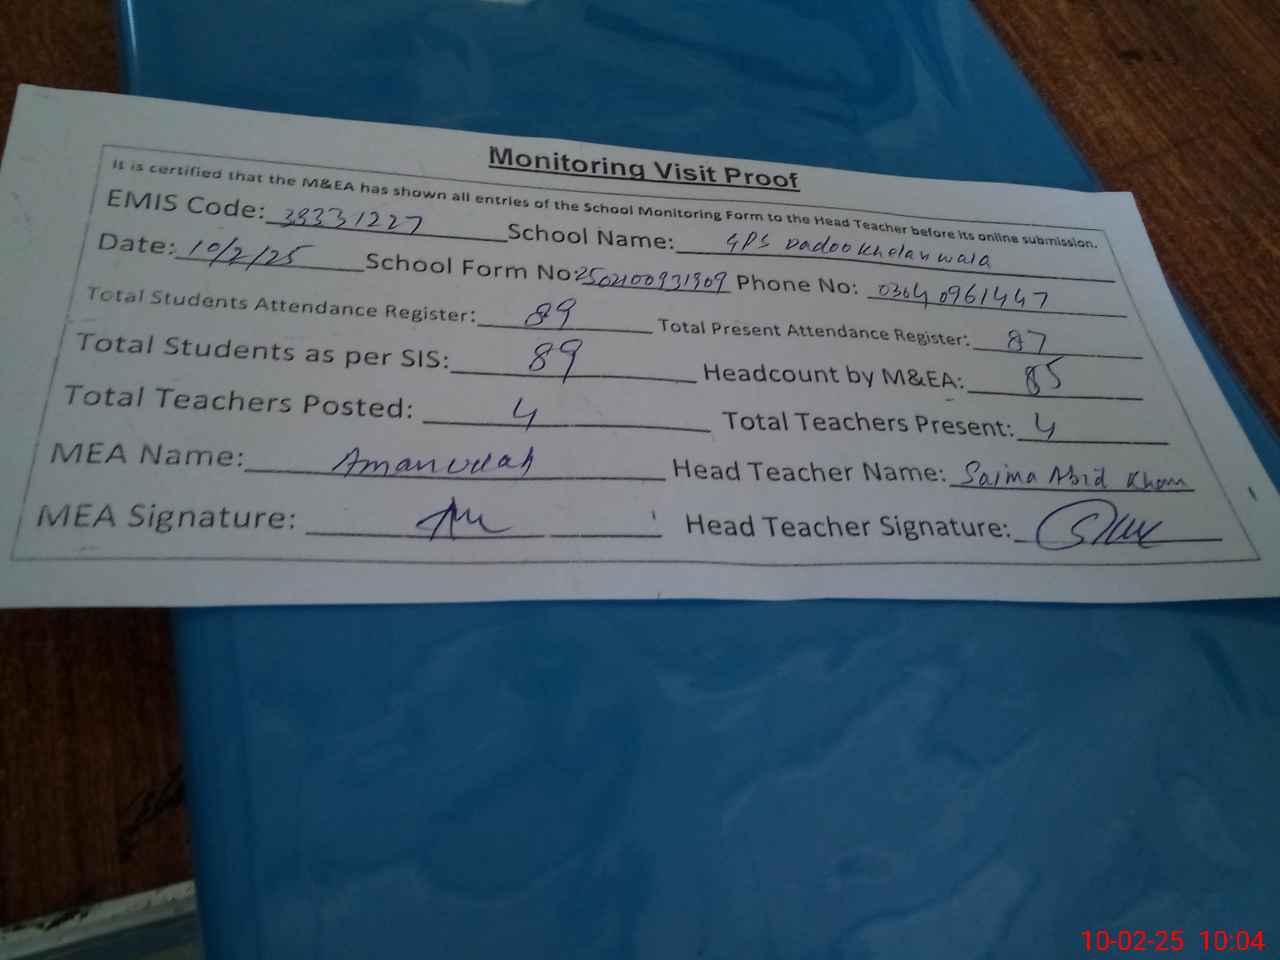 Monitoring Visit Proof
It is certified that the M&EA has shown all entries of the School Monitoring Form to the Head Teacher before its online submission.
EMIS Code: 38331227 School Name: GPS Dadoo Khelan wala
Date: 10/2/25 School Form No: 2502100931909 Phone No: 0304 0961447
Total Students Attendance Register: 89 Total Present Attendance Register: 87
Total Students as per SIS: 89 Headcount by M&EA: 85
Total Teachers Posted: 4 Total Teachers Present: 4
MEA Name: Amanullah Head Teacher Name: Saima Abid Khan
MEA Signature: Head Teacher Signature:
10-02-25 10:04